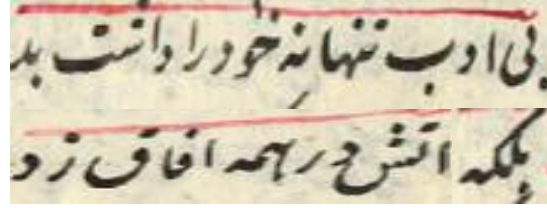 بی ادب تنها نه خود را داشت بد
بلکه اتش در همه افاق زد